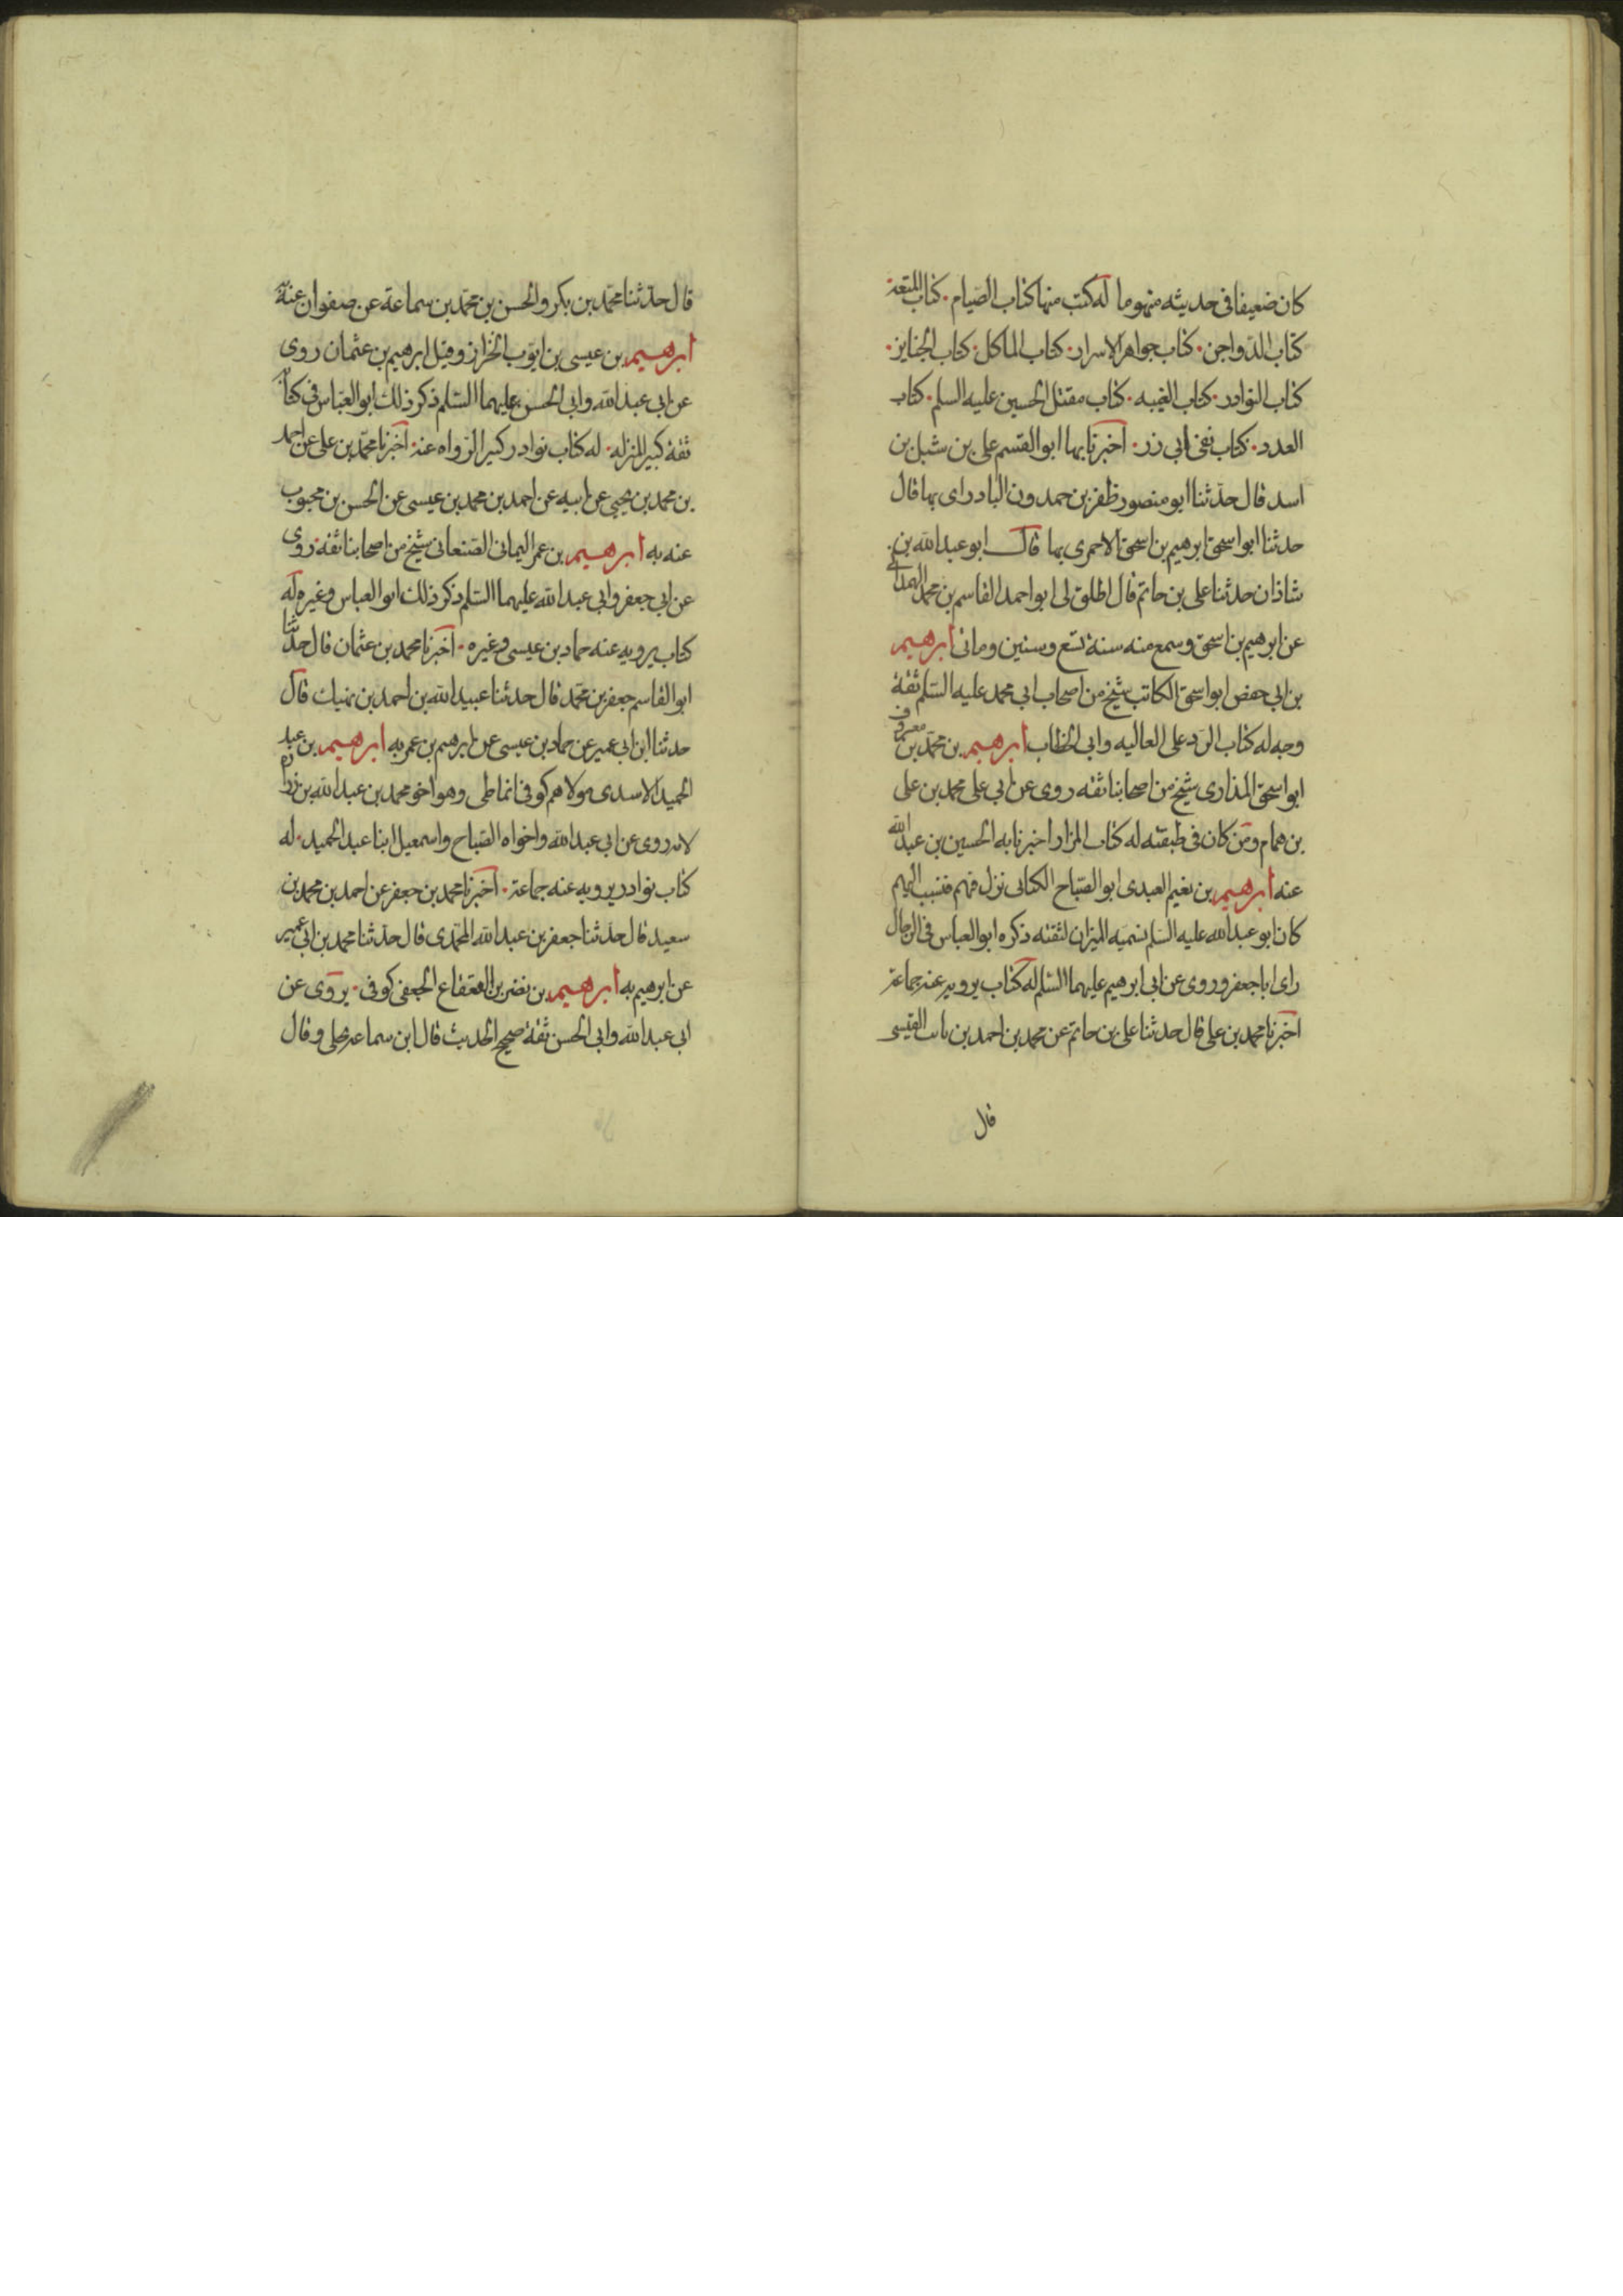 كان ضعيفا في حديثه منهوما له كتب منها كتاب الصيام . كتاب المتعة .
كتاب الدواجن . كتاب جواهر الاسرار . كتاب الماكل . كتاب الجنايز .
كتاب النوادر . كتاب الغيبه . كتاب مقتل الحسين عليه السلم . كتاب
العدد . كتاب نفي ابي ذر . اخبرنا بها ابو القسم علي بن شبل بن
اسد قال حدثنا ابو منصور ظفر بن حمدون البادراى بها قال
حدثنا ابو اسحق ابرهيم بن اسحق الاحمرى بها قال ابو عبد الله بن
شاذان حدثنا على بن حاتم قال اطلق لى ابو احمد القاسم بن محمد الهمداني
عن ابرهيم بن اسحق وسمع منه سنة تسع وستين ومائى ابرهيم
بن ابي حفص ابو اسحق الكاتب شيخ من اصحاب ابي محمد عليه السلم ثقة
وجه له كتاب الرد على العاليه وابي الخطاب ابرهيم بن محمد بن معروف
ابو اسحق المذارى شيخ من اصحابنا ثقه روى عن ابي على محمد بن على
بن همام ومن كان في طبقته له كتاب المزار اخبرنا به الحسين بن عبيد الله
عنه ابرهيم بن نعيم العبدى ابو الصباح الكنانى نزل فيهم فنسب اليهم
كان ابو عبد الله عليه السلم يسميه الميزان لثقته ذكره ابو العباس في الرجال
راى ابا جعفر وروى عن ابي ابرهيم عليهما السلم له كتاب يرويه عنه جماعة
اخبرنا محمد بن على قال حدثنا على بن حاتم عن محمد بن احمد بن ثابت القيسى
قال
قال حدثنا محمد بن بكر والحسن بن محمد بن سماعة عن صفوان عنه به
ابرهيم بن عيسى بن ايوب الخزاز وقيل ابرهيم بن عثمان روى
عن ابي عبد الله وابي الحسن عليهما السلم ذكر ذلك ابو العباس في كتابه
ثقة كبير المنزله . له كتاب نوادر كثير الرواه عنه . اخبرنا محمد بن على عن احمد
بن محمد بن يحيى عن ابيه عن احمد بن محمد بن عيسى عن الحسن بن محبوب
عنه به ابرهيم بن عمر اليمانى الصنعانى شيخ من اصحابنا ثقة روى
عن ابي جعفر وابي عبد الله عليهما السلم ذكر ذلك ابو العباس وغيره له
كتاب يرويه عنه حماد بن عيسى وغيره . اخبرنا محمد بن عثمان قال حدثنا
ابو القاسم جعفر بن محمد قال حدثنا عبيد الله بن احمد بن نهيك قال
حدثنا ابن ابي عمير عن حماد بن عيسى عن ابرهيم بن عمر به ابرهيم بن عبد
الحميد الاسدى مولاهم كوفى انماطى وهو اخو محمد بن عبد الله بن زرارة
لامه روى عن ابي عبد الله واخواه الصباح واسمعيل ابنا عبد الحميد . له
كتاب نوادر يرويه عنه جماعة . اخبرنا محمد بن جعفر عن احمد بن محمد بن
سعيد قال حدثنا جعفر بن عبد الله المحمدى قال حدثنا محمد بن ابي عمير
عن ابرهيم به ابرهيم بن نصر بن القعقاع الجعفى كوفى . يروى عن
ابي عبد الله وابي الحسن ثقة صحيح الحديث قال ابن سماعة بجلى وقال